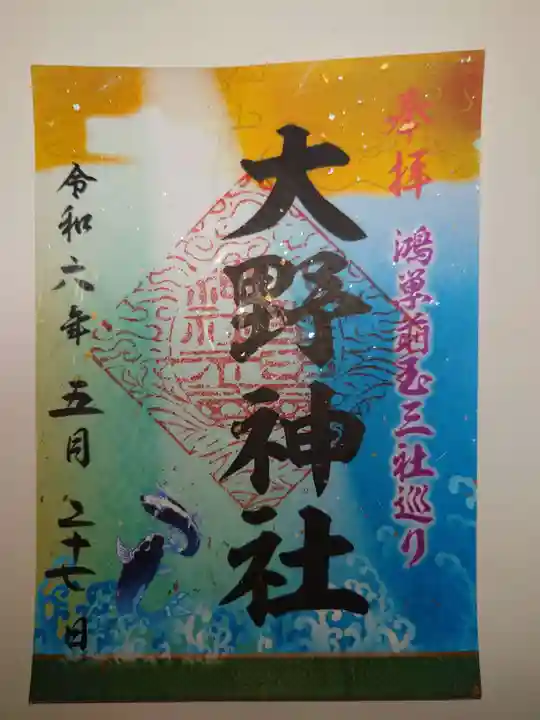 奉拝
鴻巣勾玉三社巡り
大野神社
令和六年五月二十七日